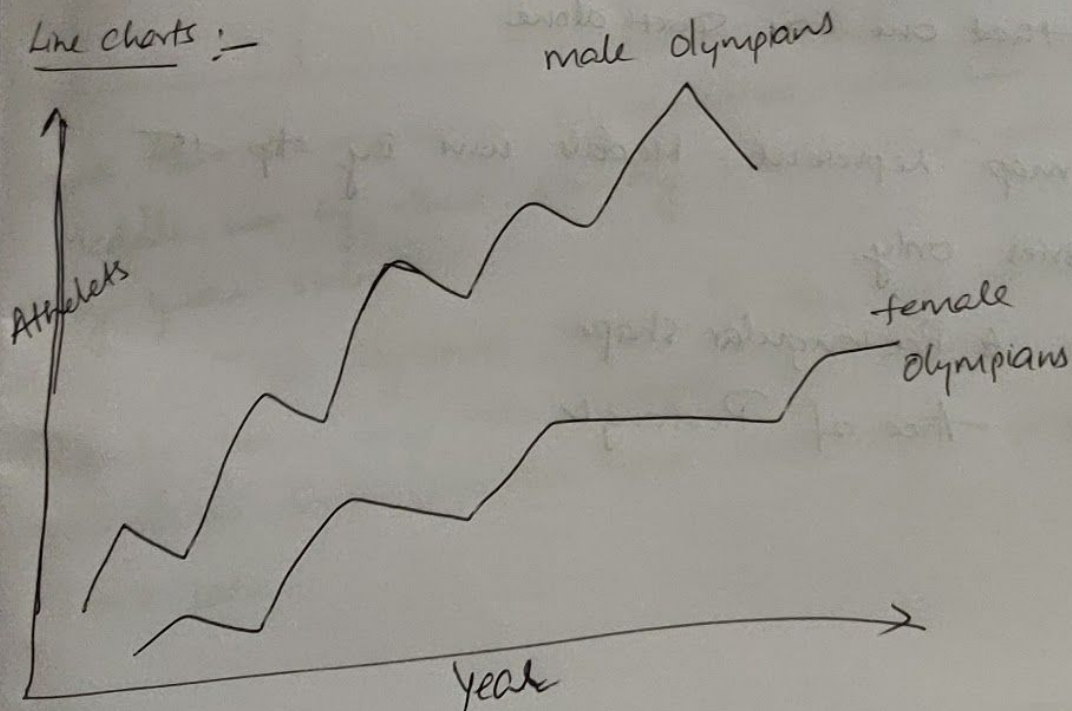 Line charts :-
male olympians
Athelets
female
olympians
Year